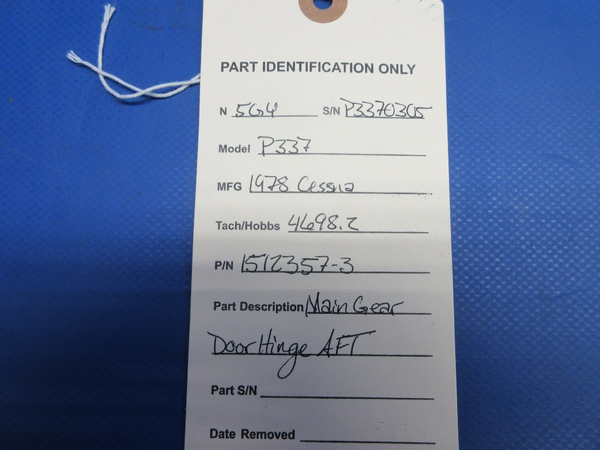 PART IDENTIFICATION ONLY
N 5GY S/N P3370305
Model P337
MFG 1978 Cessna
Tach/Hobbs 4698.2
P/N 1512357-3
Part Description Main Gear
Door Hinge AFT
Part S/N
Date Removed